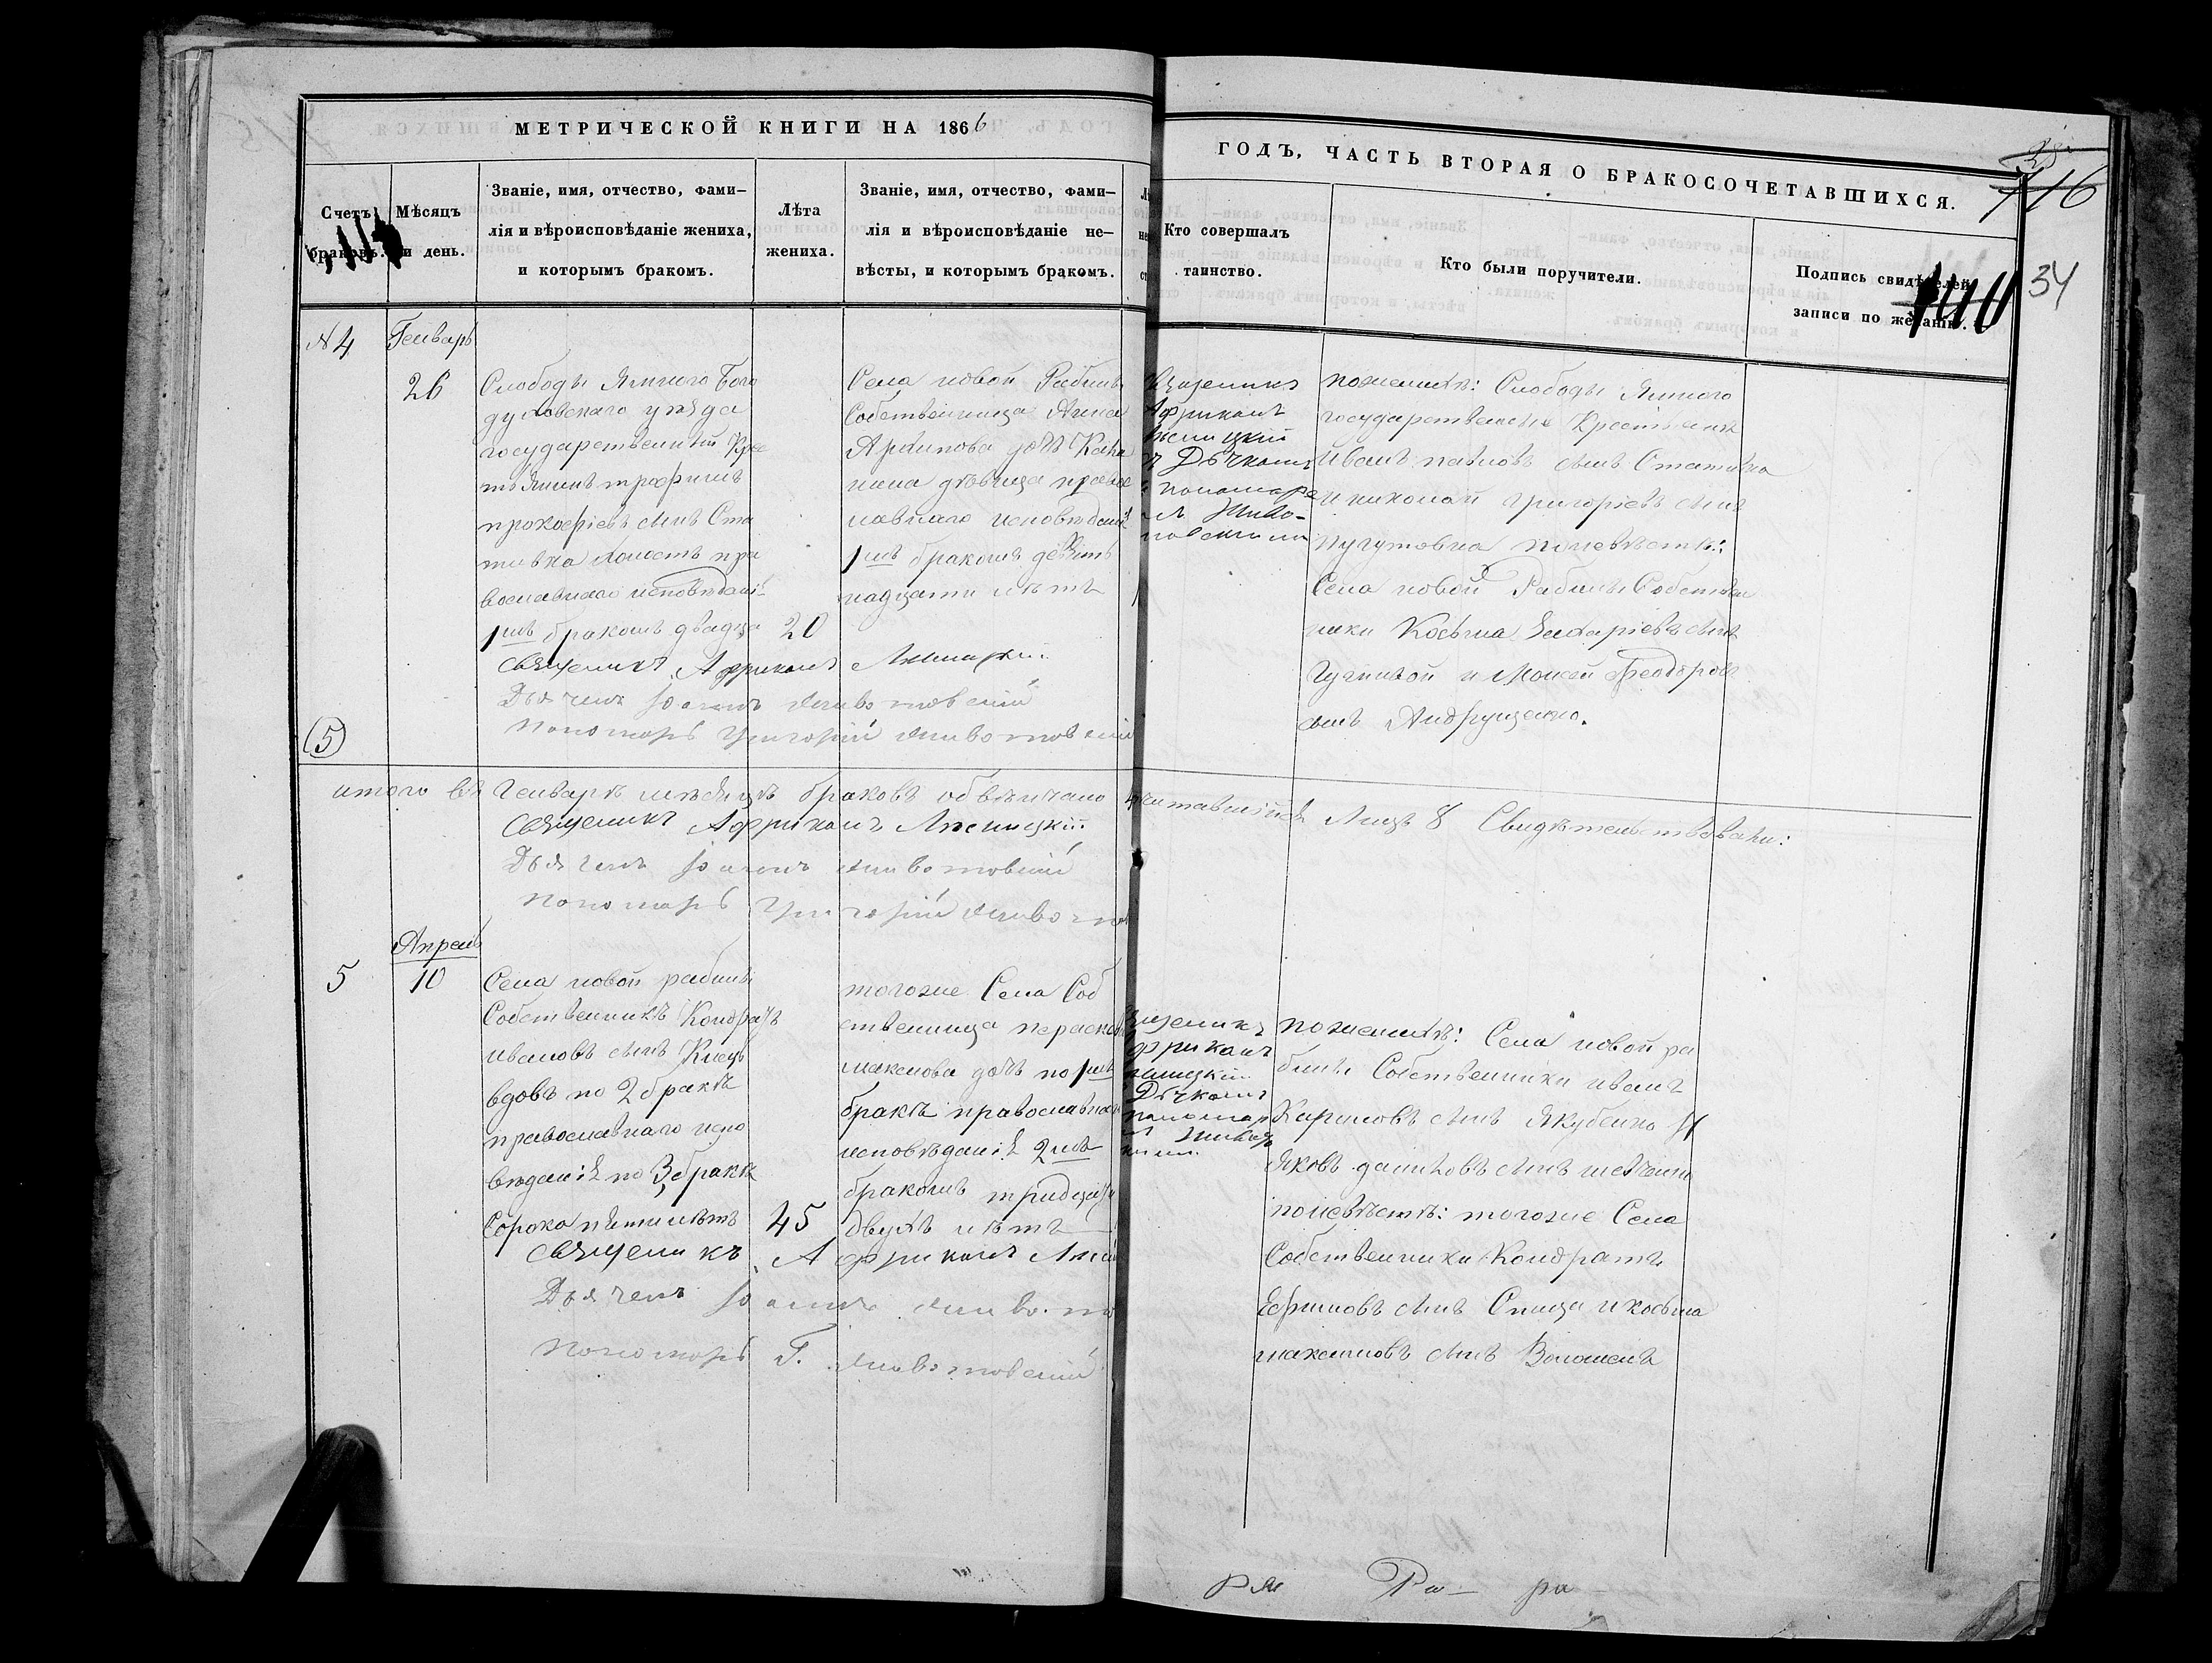 МЕТРИЧЕСКОЙ КНИГИ НА 1866
ГОДЪ, ЧАСТЬ ВТОРАЯ О БРАКОСОЧЕТАВШИХСЯ.
116
34
Счетъ
браковъ.
Мѣсяцъ
и день.
Званіе, имя, отчество, фами–
лія и вѣроисповѣданіе жениха,
и которымъ бракомъ.
Лѣта
жениха.
Званіе, имя, отчество, фами–
лія и вѣроисповѣданіе не–
вѣсты, и которымъ бракомъ.
Кто совершалъ
таинство.
Кто были поручители.
Подпись свидѣтелей
записи по желанію.
№ 4
Генварь
26
Слободы Ямного Бого
духовскаго уѣзда
государственный Крес
тьянинъ трофимъ
прокофіевъ сынъ Ста
тивка холостъ пра
вославнаго исповѣданія
1мъ бракомъ двадца
20
Села новой Рабины
Собственница Анна
Архипова дочь
дѣвица правос
лавнаго исповѣданія
1мъ бракомъ девят
надцати лѣтъ
Африканъ
пономаре
пожениху: Слободы Ямного
государственные Крестьяне
Иванъ павловъ сынъ Стативка
и николай григорьевъ сынъ
поневѣстѣ:
Села новой Рабины Собствен
ники Косьма Захаріевъ сынъ
и Моисей Феодоровъ
сынъ Андрущенко.
Священникъ Африканъ
Дьячекъ Іоаннъ
Пономарь Григорій
5
итого въ Генварѣ мѣсяцѣ браковъ обвѣнчано 4
Лицъ 8 Свидѣтельствовали:
Священникъ Африканъ
Дьячекъ Іоаннъ
Пономарь Григорій
5
Апрель
10
Села новой рабины
Собственникъ Кондратъ
ивановъ сынъ
вдовъ по 2 бракѣ
православнаго испо
вѣданія по 3 бракѣ
Сорока пяти лѣтъ
45
тогоже Села Соб
ственница
дочь по 1мъ
бракѣ православнаго
исповѣданія 2мъ
бракомъ тридцати
двухъ лѣтъ
пожениху: Села новой ра
бины Собственники иванъ
Карповъ сынъ Якубенко и
Яковъ даниловъ сынъ
поневѣстѣ: тогоже Села
Собственники Кондратъ
Ефимовъ сынъ Спица и косьма
максимовъ сынъ Волошенъ
Священникъ Африканъ
Дьячекъ Іоаннъ
Пономарь Г.